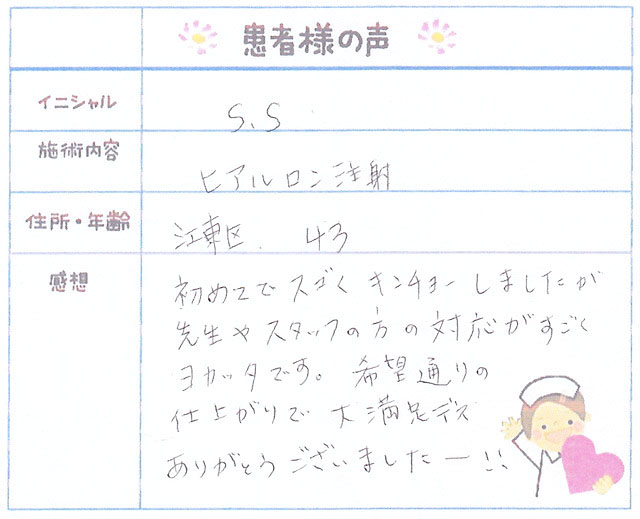 患者様の声
イニシャル
S.S
施術内容
ヒアルロン注射
住所・年齢
江東区. 43
感想
初めてでスゴくキンチョーしましたが
先生やスタッフの方の対応がすごく
ヨカッタです。希望通りの
仕上がりで大満足デス
ありがとうございましたー!!